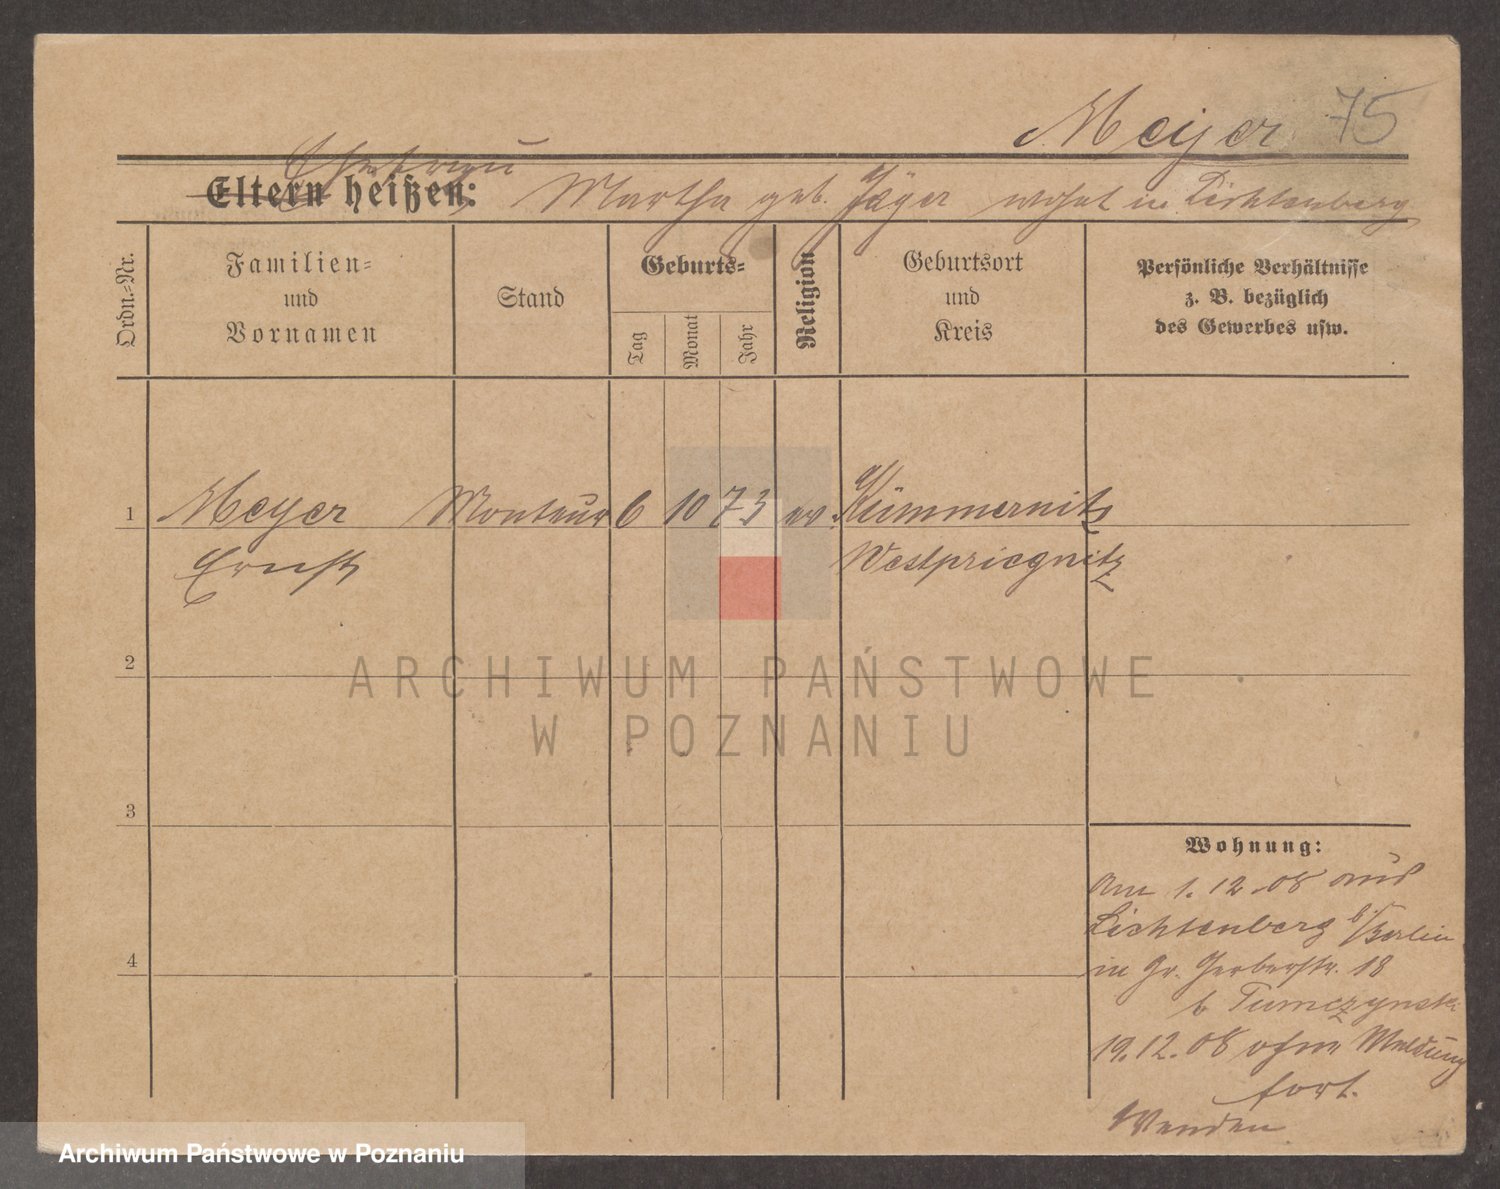 Meyer 75
Ehefrau
Eltern heißen: Martha geb. Jäger wohnt in Lichtenberg
Ordn.-Nr.
Familien-
und
Vornamen
Stand
Geburts-
Tag
Monat
Jahr
Religion
Geburtsort
und
Kreis
Persönliche Verhältnisse
z. B. bezüglich
des Gewerbes usw.
1 Meyer Monteur 6 10 73 ev. Kümmernitz
Ernst Westpriegnitz
2
ARCHIWUM PAŃSTWOWE
W POZNANIU
3
Wohnung:
Am 1.12.08 aus
Lichtenberg b/Berlin
in Gr. Gerberstr. 18
b Tumczynski
4
19.12.08 ohne Meldung
fort.
Wenden
Archiwum Państwowe w Poznaniu